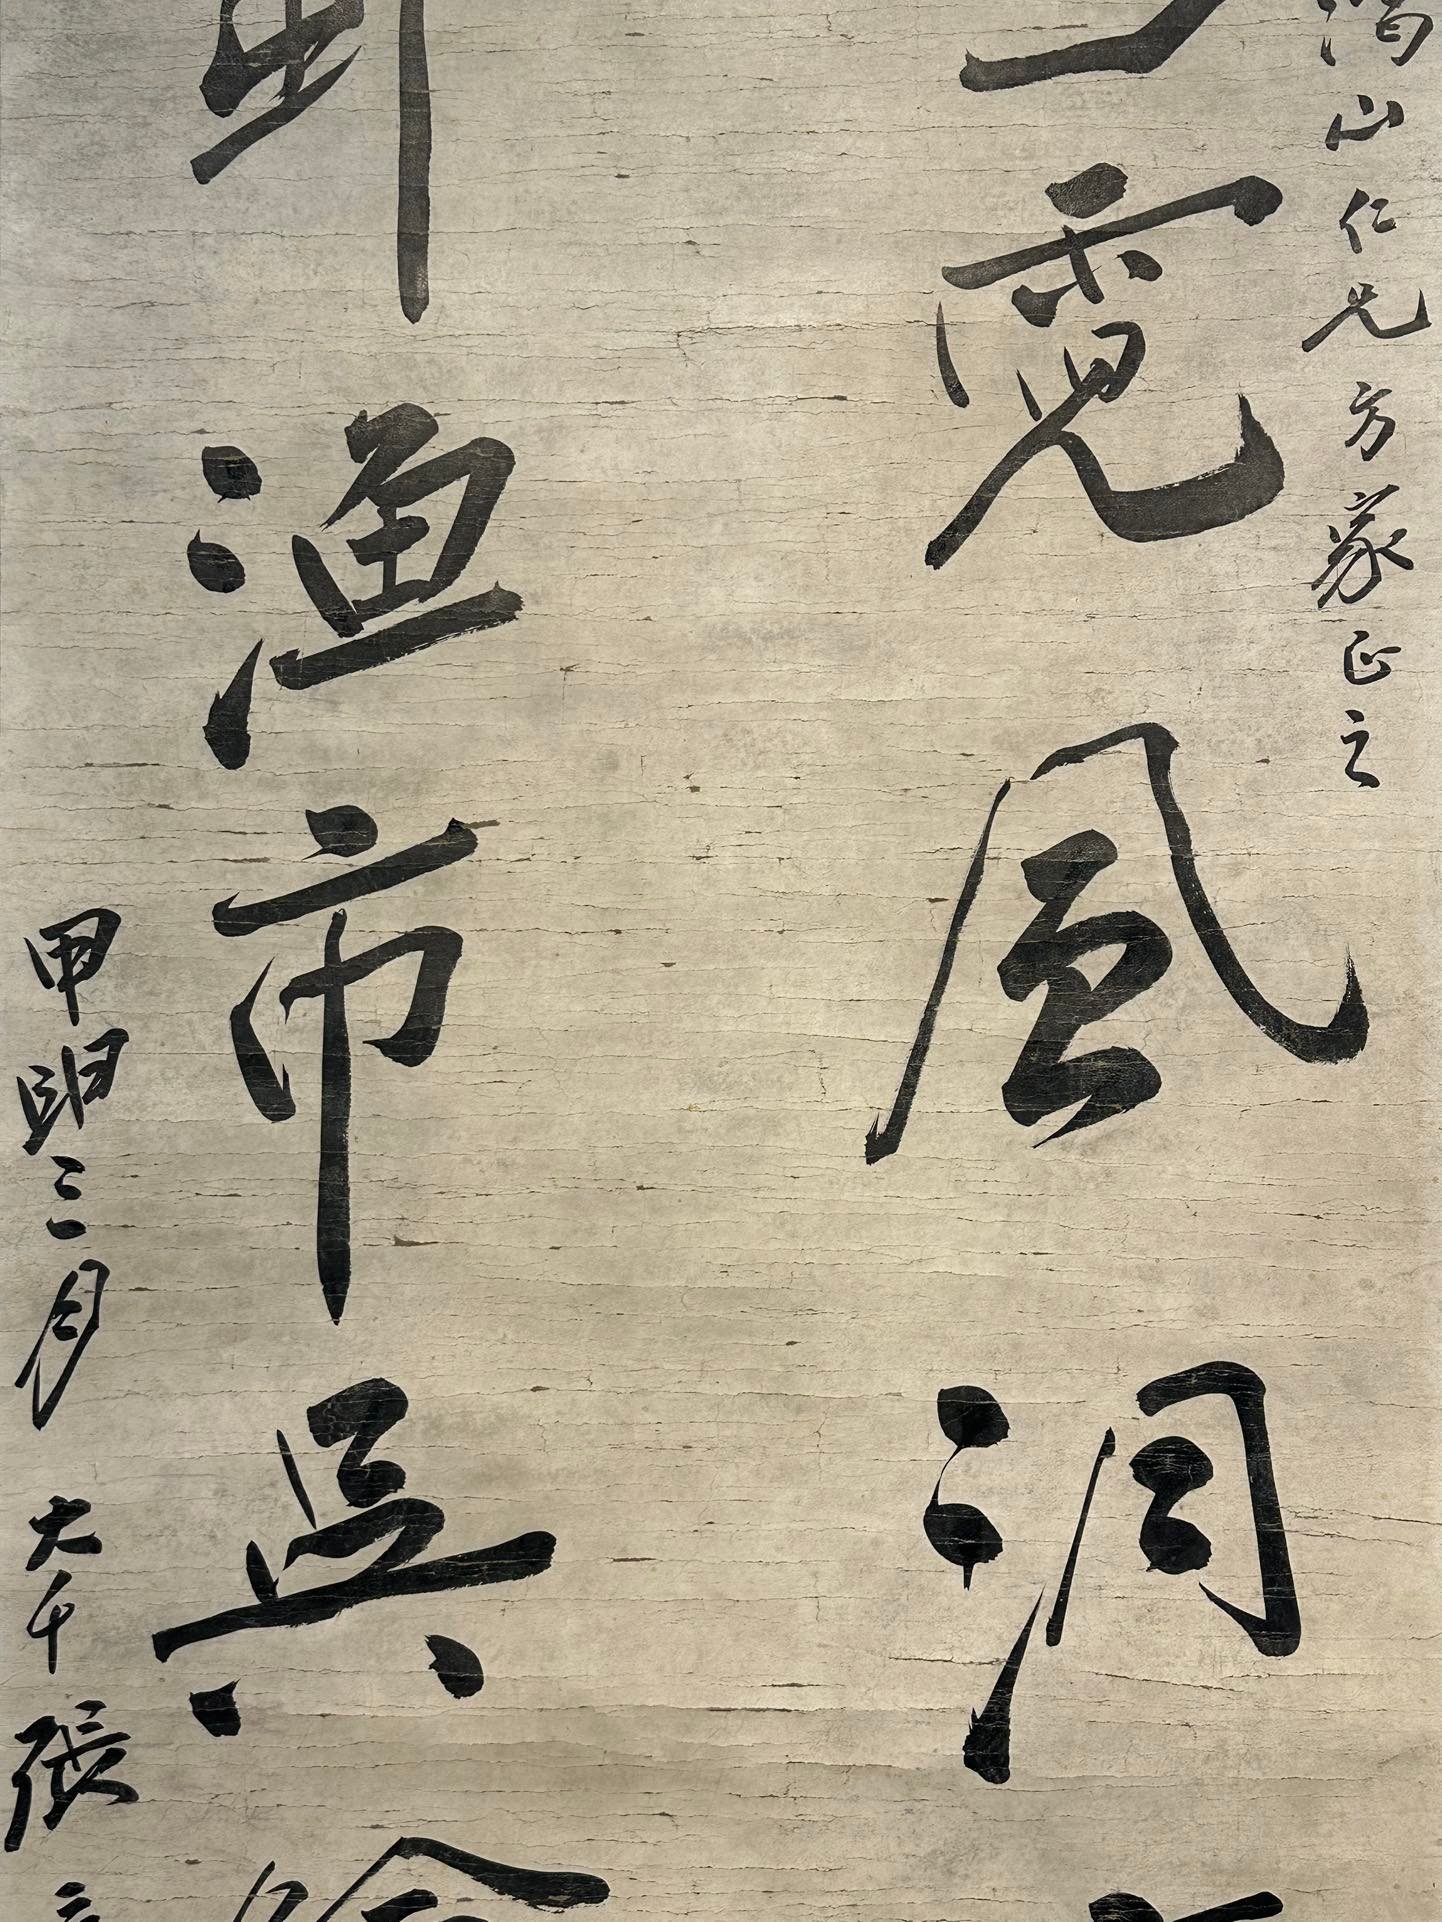 山仁兄方家正之
霓風洞
漁市吳
甲申三月大千張